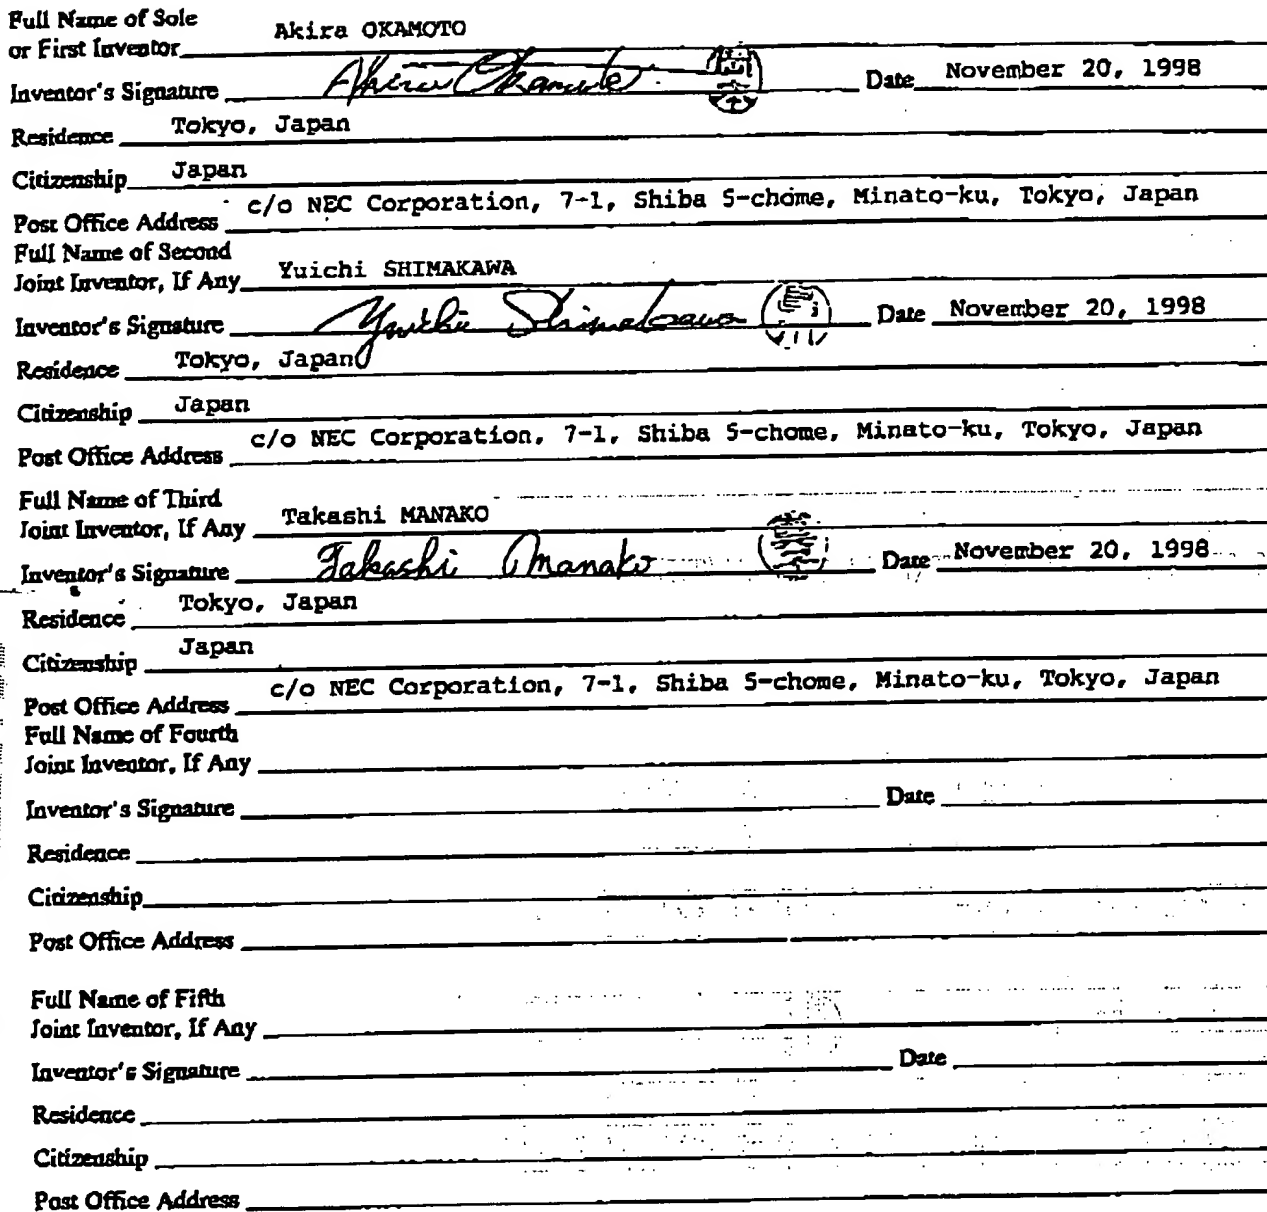 Full Name of Sole
or First Inventor Akira OKAMOTO
Inventor's Signature Akira Okamoto Date November 20, 1998
Residence Tokyo, Japan
Citizenship Japan
Post Office Address c/o NEC Corporation, 7-1, Shiba 5-chome, Minato-ku, Tokyo, Japan
Full Name of Second
Joint Inventor, If Any Yuichi SHIMAKAWA
Inventor's Signature Yuichi Shimakawa Date November 20, 1998
Residence Tokyo, Japan
Citizenship Japan
Post Office Address c/o NEC Corporation, 7-1, Shiba 5-chome, Minato-ku, Tokyo, Japan
Full Name of Third
Joint Inventor, If Any Takashi MANAKO
Inventor's Signature Takashi Manako Date November 20, 1998
Residence Tokyo, Japan
Citizenship Japan
Post Office Address c/o NEC Corporation, 7-1, Shiba 5-chome, Minato-ku, Tokyo, Japan
Full Name of Fourth
Joint Inventor, If Any
Inventor's Signature Date
Residence
Citizenship
Post Office Address
Full Name of Fifth
Joint Inventor, If Any
Inventor's Signature Date
Residence
Citizenship
Post Office Address